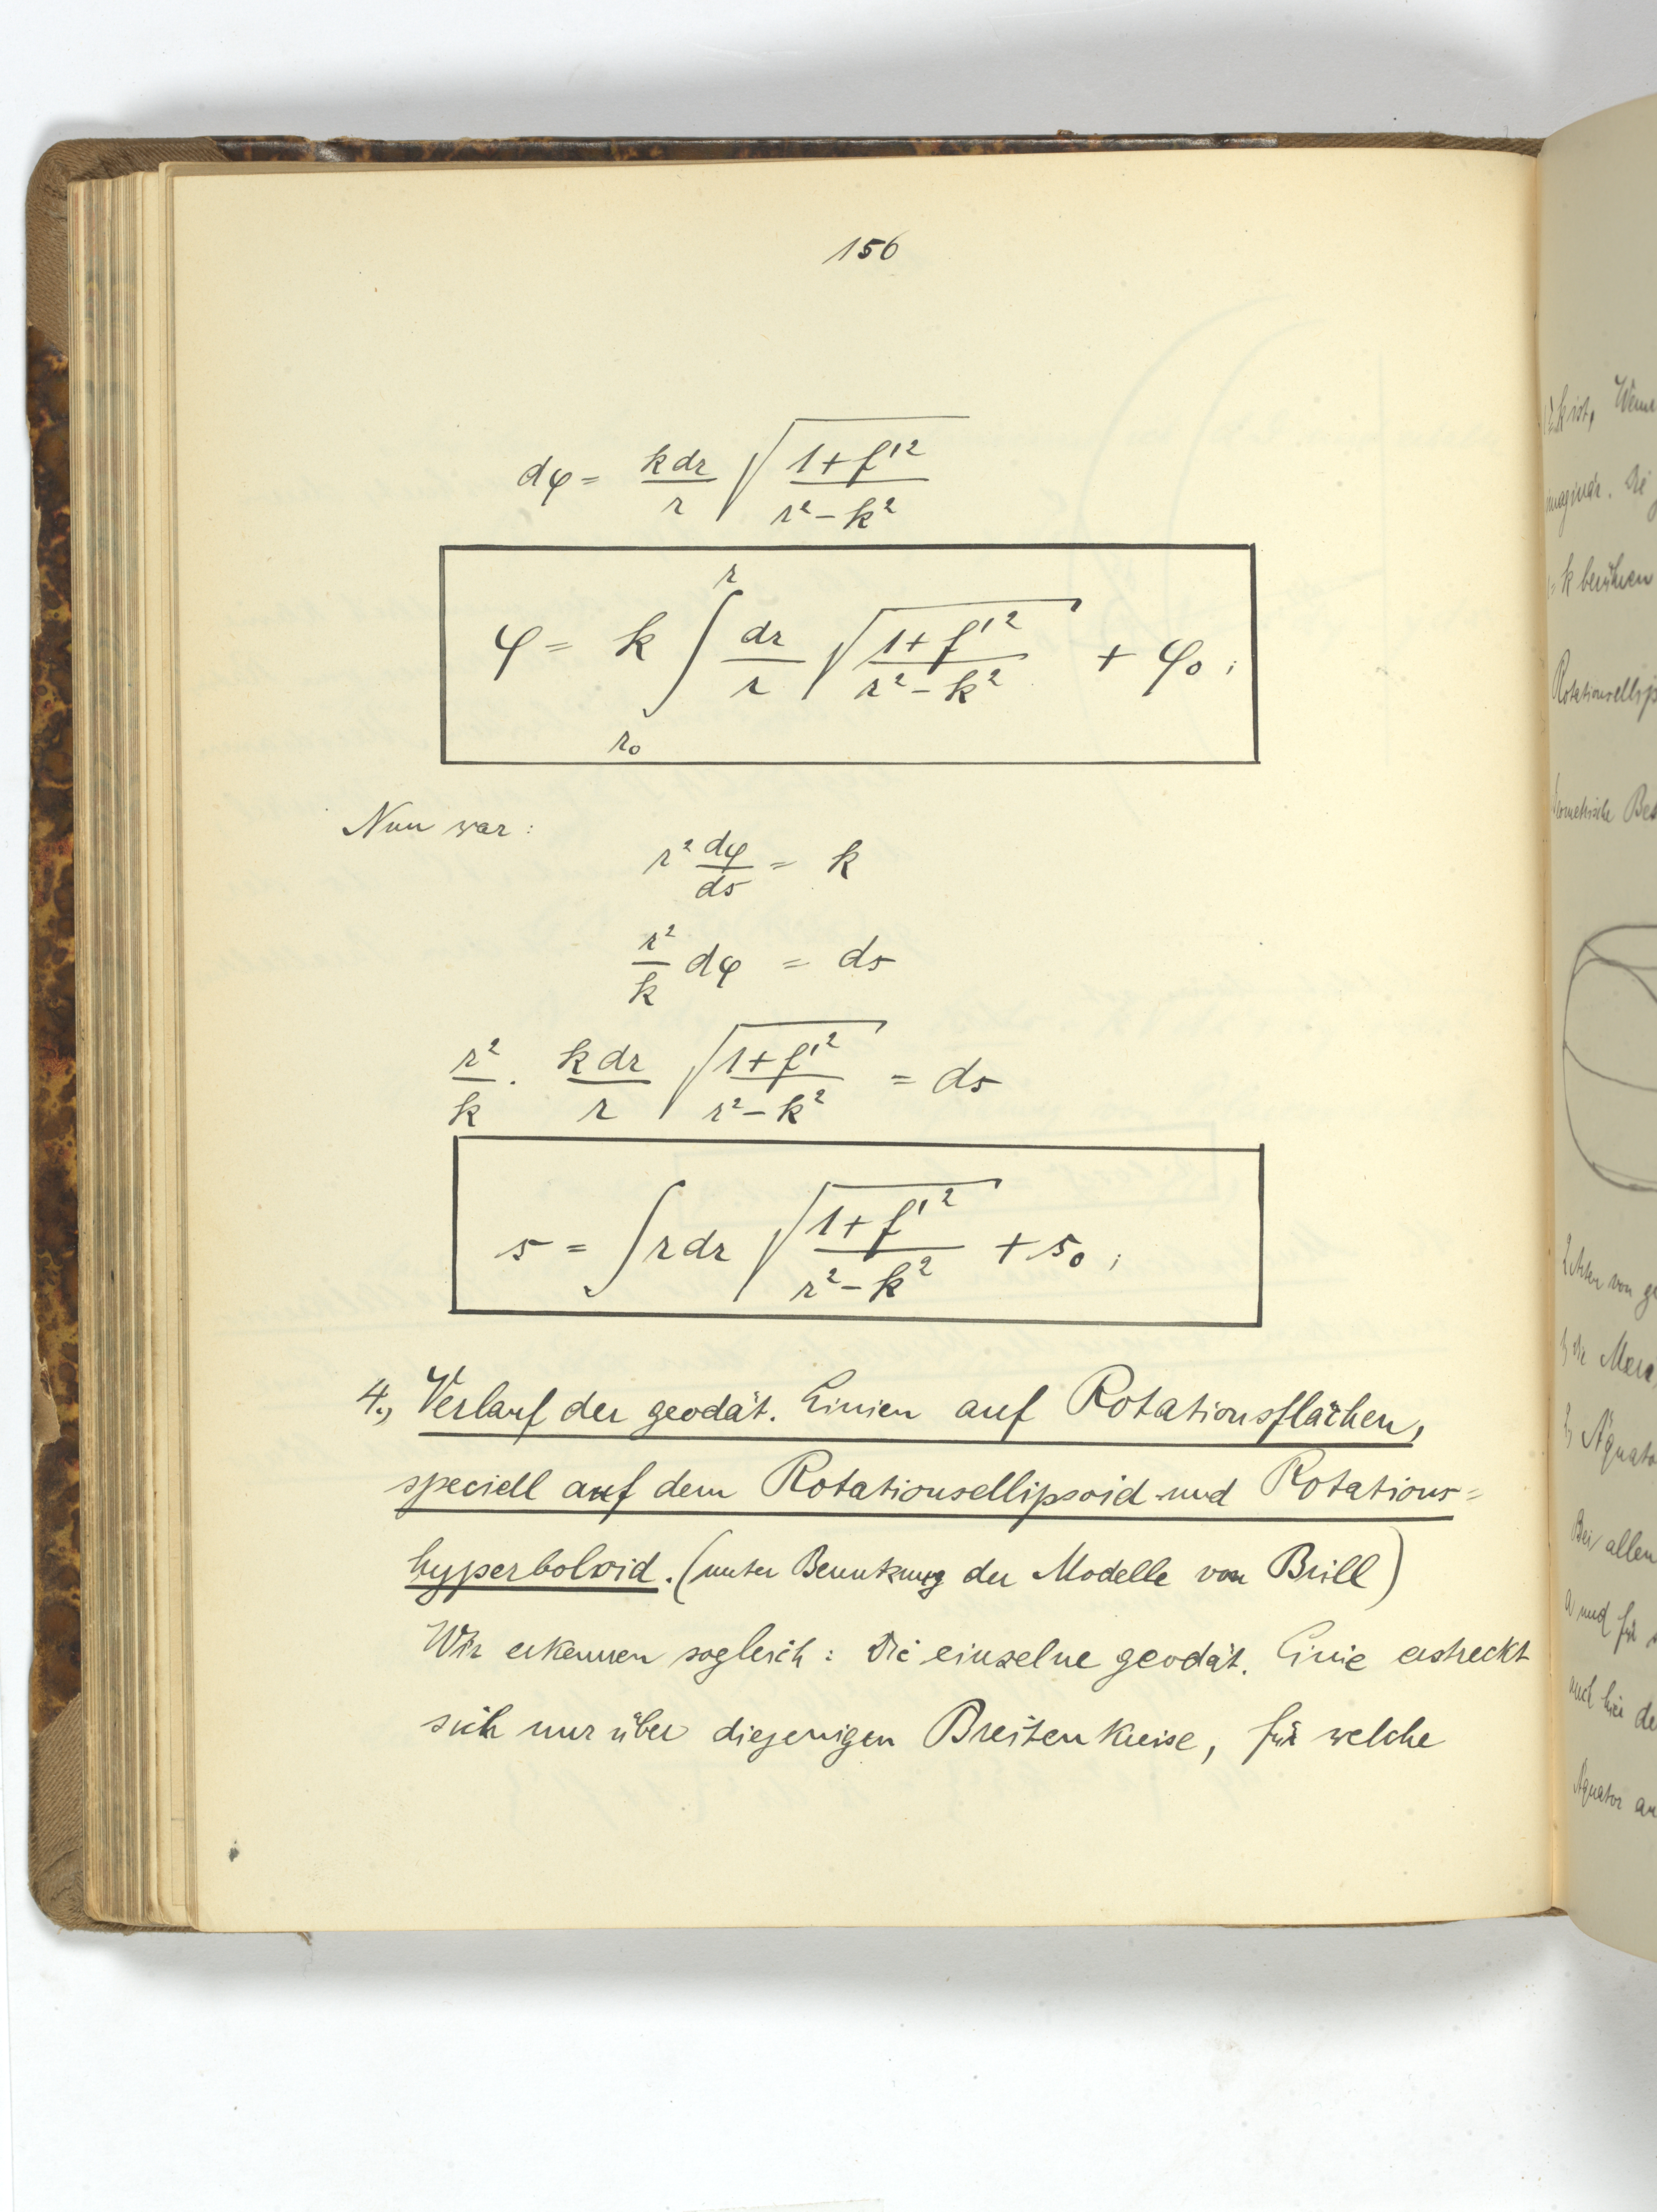 156
dφ = k dr / r √(1+f'² / r²-k²)
φ = k ∫_{r₀}^{r} dr / r √(1+f'² / r²-k²) + φ₀;
Nun war:
r² dφ/ds = k
r²/k dφ = ds
r²/k · k dr / r √(1+f'² / r²-k²) = ds
s = ∫ r dr √(1+f'² / r²-k²) + s₀;
4., Verlauf der geodät. Linien auf Rotationsflächen,
speciell auf dem Rotationsellipsoid und Rotations=
hyperboloid. (unter Benutzung der Modelle von Brill)
Wir erkennen sogleich: Die einzelne geodät. Linie erstreckt
sich nur über diejenigen Breitenkreise, für welche
k ist,
imaginär. Die
= k berühren
Rotationsellip
von
die
Bei allen
und für
auch hier
Äquator